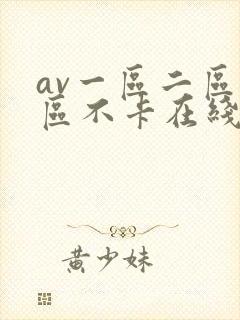 av一區二區
區不卡在綫
黃少妹